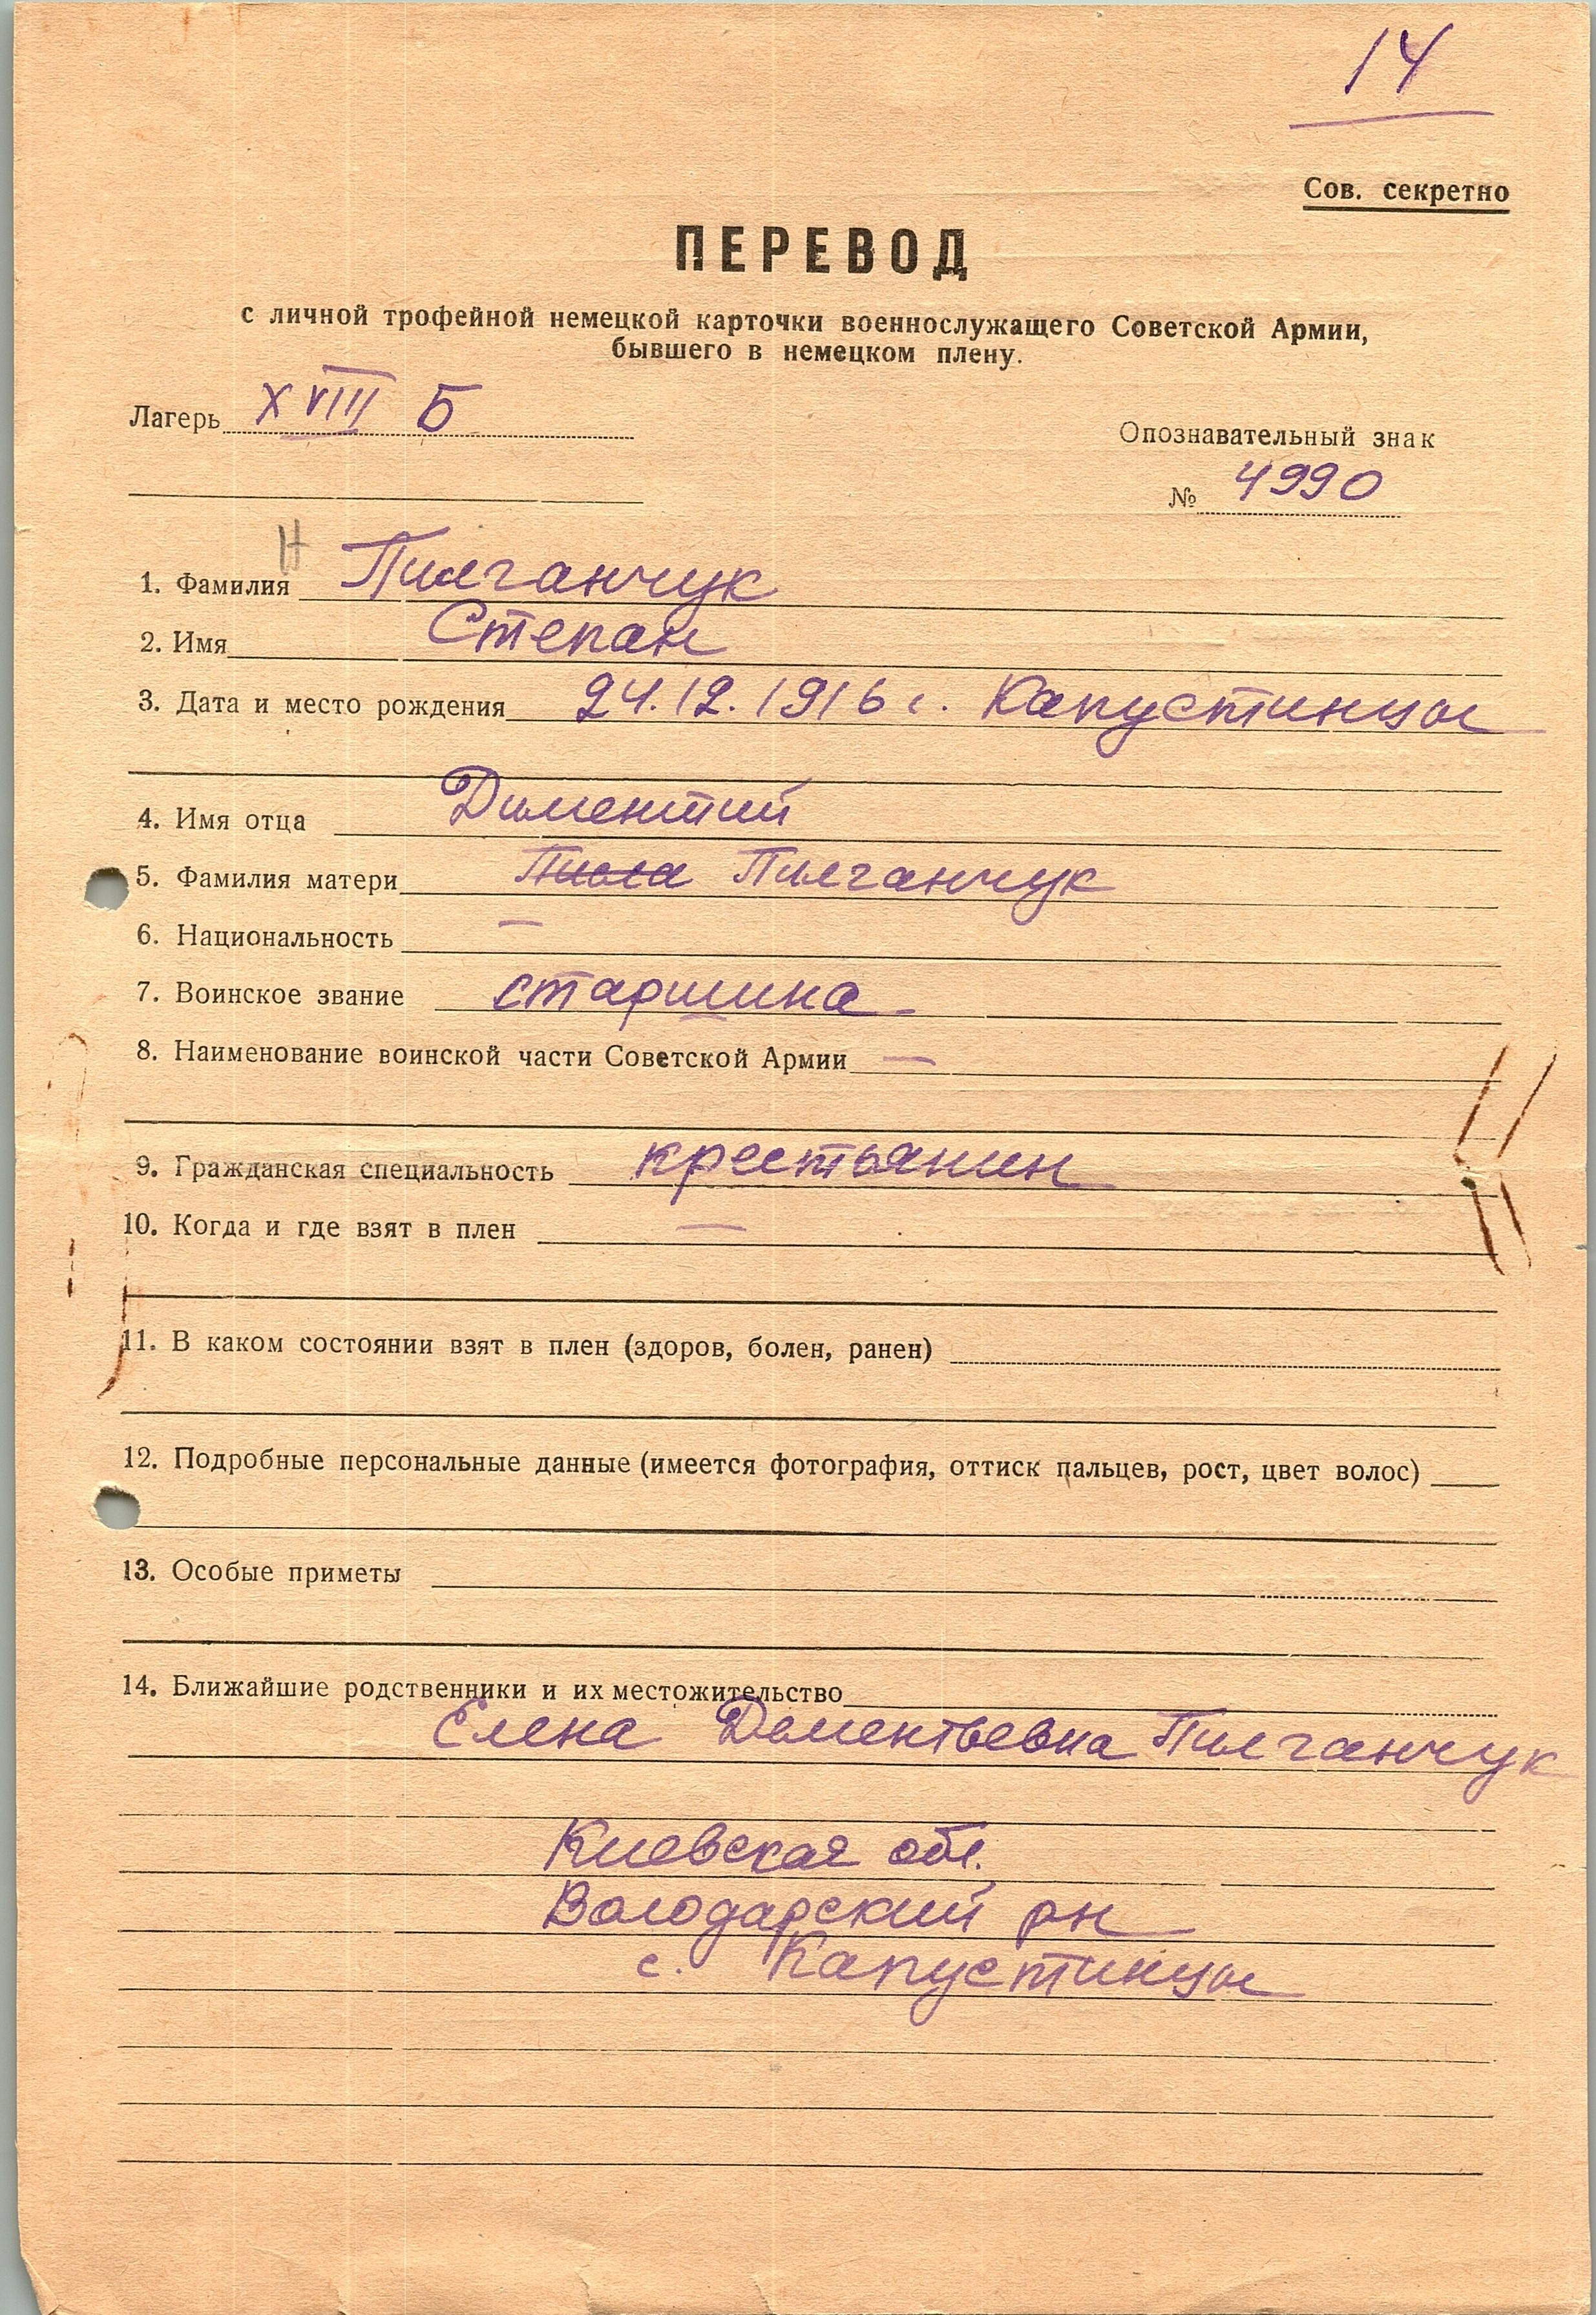 14
Сов. секретно
ПЕРЕВОД
с личной трофейной немецкой карточки военнослужащего Советской Армии,
бывшего в немецком плену.
Лагерь XVIII Б
Опознавательный знак
№ 4990
Н
1. Фамилия Пилганчук
2. Имя Степан
3. Дата и место рождения 24.12.1916 г. Капустинцы
4. Имя отца Диментий
5. Фамилия матери Пилганчук
6. Национальность —
7. Воинское звание старшина
8. Наименование воинской части Советской Армии —
9. Гражданская специальность крестьянин
10. Когда и где взят в плен —
11. В каком состоянии взят в плен (здоров, болен, ранен)
12. Подробные персональные данные (имеется фотография, оттиск пальцев, рост, цвет волос)
13. Особые приметы
14. Ближайшие родственники и их местожительство
Елена Дементьевна Пилганчук
Киевская обл.
Володарский рн
с. Капустинцы